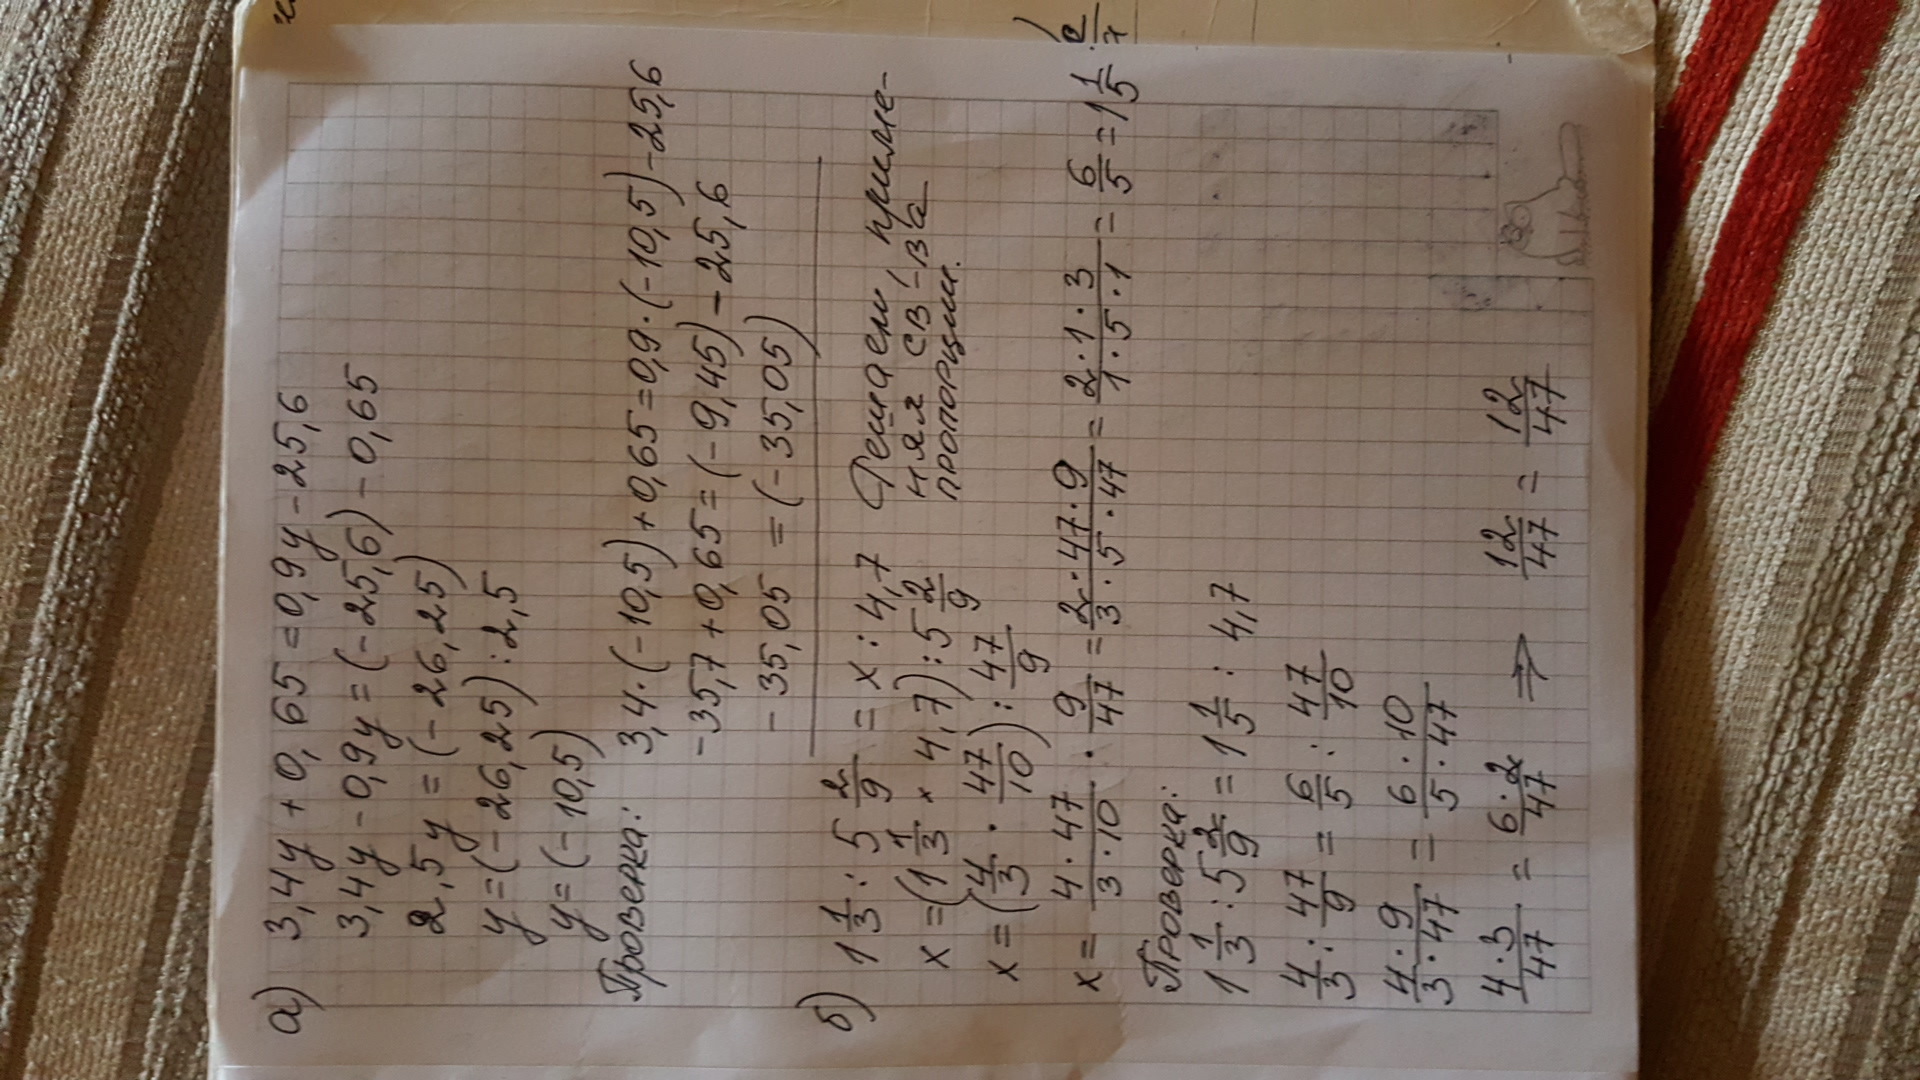 а) 3,4y + 0,65 = 0,9y - 25,6
3,4y - 0,9y = (-25,6) - 0,65
2,5y = (-26,25)
y = (-26,25) : 2,5
y = (-10,5)
Проверка: 3,4·(-10,5)+0,65=0,9·(-10,5)-25,6
-35,7+0,65=(-9,45)-25,6
-35,05 = (-35,05)
б) 1 1/3 : 5 2/9 = x : 4,7 Решаем, приме-
x = (1 1/3 × 4,7) : 5 2/9 няя св-ва
x = (4/3 · 47/10) : 47/9 пропорции.
x = 4·47/3·10 · 9/47 = 2·47·9/3·5·47 = 2·1·3/1·5·1 = 6/5 = 1 1/5
Проверка:
1 1/3 : 5 2/9 = 1 1/5 : 4,7
4/3 : 47/9 = 6/5 : 47/10
4·9/3·47 = 6·10/5·47
4·3/47 = 6·2/47 ⇒ 12/47 = 12/47